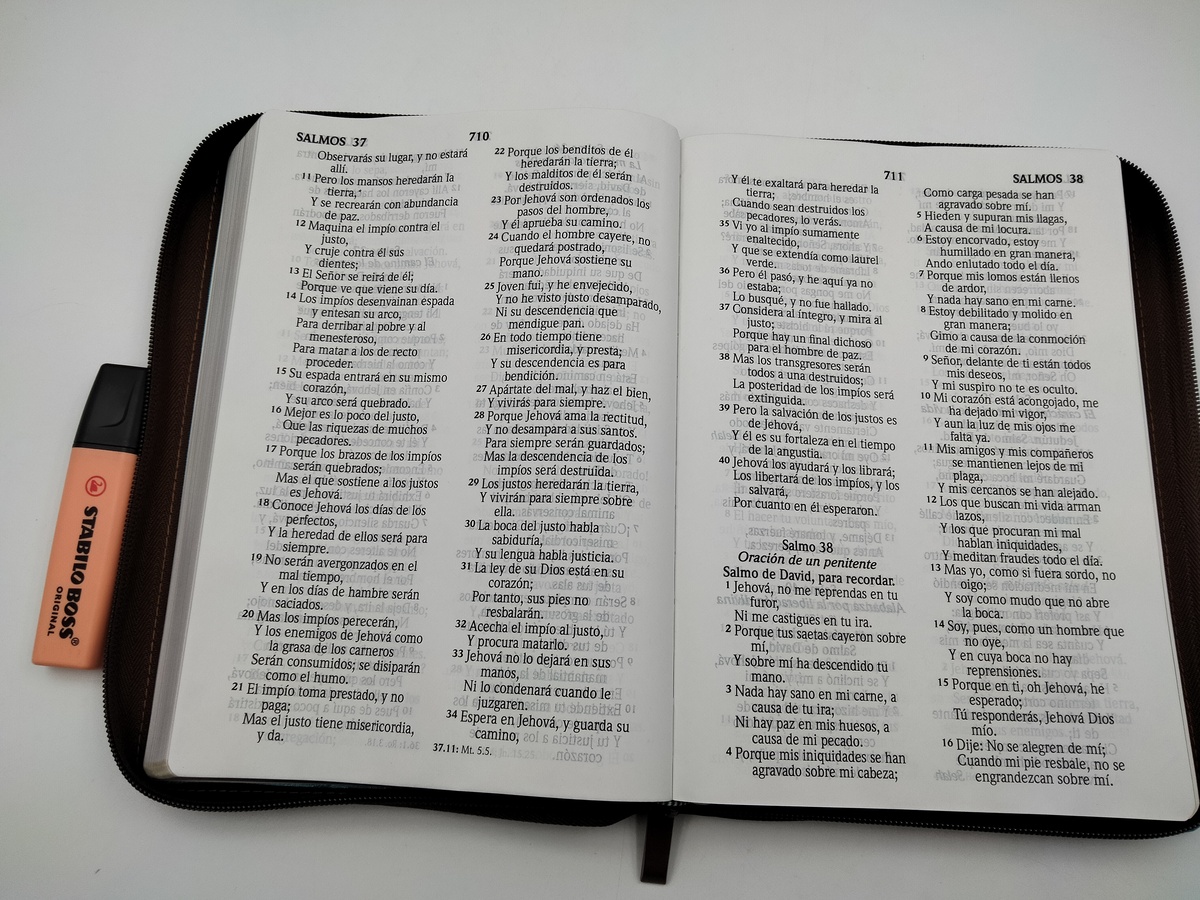 SALMOS 37
710
Observarás su lugar, y no estará
allí.
11 Pero los mansos heredarán la
tierra,
Y se recrearán con abundancia
de paz.
12 Maquina el impío contra el
justo,
Y cruje contra él sus
dientes;
13 El Señor se reirá de él;
Porque ve que viene su día.
14 Los impíos desenvainan espada
y entesan su arco,
Para derribar al pobre y al
menesteroso,
Para matar a los de recto
proceder.
15 Su espada entrará en su mismo
corazón,
Y su arco será quebrado.
16 Mejor es lo poco del justo,
Que las riquezas de muchos
pecadores.
17 Porque los brazos de los impíos
serán quebrados;
Mas el que sostiene a los justos
es Jehová.
18 Conoce Jehová los días de los
perfectos,
Y la heredad de ellos será para
siempre.
19 No serán avergonzados en el
mal tiempo,
Y en los días de hambre serán
saciados.
20 Mas los impíos perecerán,
Y los enemigos de Jehová como
la grasa de los carneros
Serán consumidos; se disiparán
como el humo.
21 El impío toma prestado, y no
paga;
Mas el justo tiene misericordia,
y da.
22 Porque los benditos de él
heredarán la tierra;
Y los malditos de él serán
destruidos.
23 Por Jehová son ordenados los
pasos del hombre,
Y él aprueba su camino.
24 Cuando el hombre cayere, no
quedará postrado,
Porque Jehová sostiene su
mano.
25 Joven fui, y he envejecido,
Y no he visto justo desamparado,
Ni su descendencia que
mendigue pan.
26 En todo tiempo tiene
misericordia, y presta;
Y su descendencia es para
bendición.
27 Apártate del mal, y haz el bien,
Y vivirás para siempre.
28 Porque Jehová ama la rectitud,
Y no desampara a sus santos.
Para siempre serán guardados;
Mas la descendencia de los
impíos será destruida.
29 Los justos heredarán la tierra,
Y vivirán para siempre sobre
ella.
30 La boca del justo habla
sabiduría,
Y su lengua habla justicia.
31 La ley de su Dios está en su
corazón;
Por tanto, sus pies no
resbalarán.
32 Acecha el impío al justo,
Y procura matarlo.
33 Jehová no lo dejará en sus
manos,
Ni lo condenará cuando le
juzgaren.
34 Espera en Jehová, y guarda su
camino,
37.11: Mt. 5.5.
711
SALMOS 38
Y él te exaltará para heredar la
tierra;
Cuando sean destruidos los
pecadores, lo verás.
35 Vi yo al impío sumamente
enaltecido,
Y que se extendía como laurel
verde.
36 Pero él pasó, y he aquí ya no
estaba;
Lo busqué, y no fue hallado.
37 Considera al íntegro, y mira al
justo;
Porque hay un final dichoso
para el hombre de paz.
38 Mas los transgresores serán
todos a una destruidos;
La posteridad de los impíos será
extinguida.
39 Pero la salvación de los justos es
de Jehová,
Y él es su fortaleza en el tiempo
de la angustia.
40 Jehová los ayudará y los librará;
Los libertará de los impíos, y los
salvará,
Por cuanto en él esperaron.
Salmo 38
Oración de un penitente
Salmo de David, para recordar.
1 Jehová, no me reprendas en tu
furor,
Ni me castigues en tu ira.
2 Porque tus saetas cayeron sobre
mí,
Y sobre mí ha descendido tu
mano.
3 Nada hay sano en mi carne, a
causa de tu ira;
Ni hay paz en mis huesos, a
causa de mi pecado.
4 Porque mis iniquidades se han
agravado sobre mi cabeza;
Como carga pesada se han
agravado sobre mí.
5 Hieden y supuran mis llagas,
A causa de mi locura.
6 Estoy encorvado, estoy
humillado en gran manera,
Ando enlutado todo el día.
7 Porque mis lomos están llenos
de ardor,
Y nada hay sano en mi carne.
8 Estoy debilitado y molido en
gran manera;
Gimo a causa de la conmoción
de mi corazón.
9 Señor, delante de ti están todos
mis deseos,
Y mi suspiro no te es oculto.
10 Mi corazón está acongojado, me
ha dejado mi vigor,
Y aun la luz de mis ojos me
falta ya.
11 Mis amigos y mis compañeros
se mantienen lejos de mi
plaga,
Y mis cercanos se han alejado.
12 Los que buscan mi vida arman
lazos,
Y los que procuran mi mal
hablan iniquidades,
Y meditan fraudes todo el día.
13 Mas yo, como si fuera sordo, no
oigo;
Y soy como mudo que no abre
la boca.
14 Soy, pues, como un hombre que
no oye,
Y en cuya boca no hay
reprensiones.
15 Porque en ti, oh Jehová, he
esperado;
Tú responderás, Jehová Dios
mío.
16 Dije: No se alegren de mí;
Cuando mi pie resbale, no se
engrandezcan sobre mí.
STABILO BOSS®
ORIGINAL